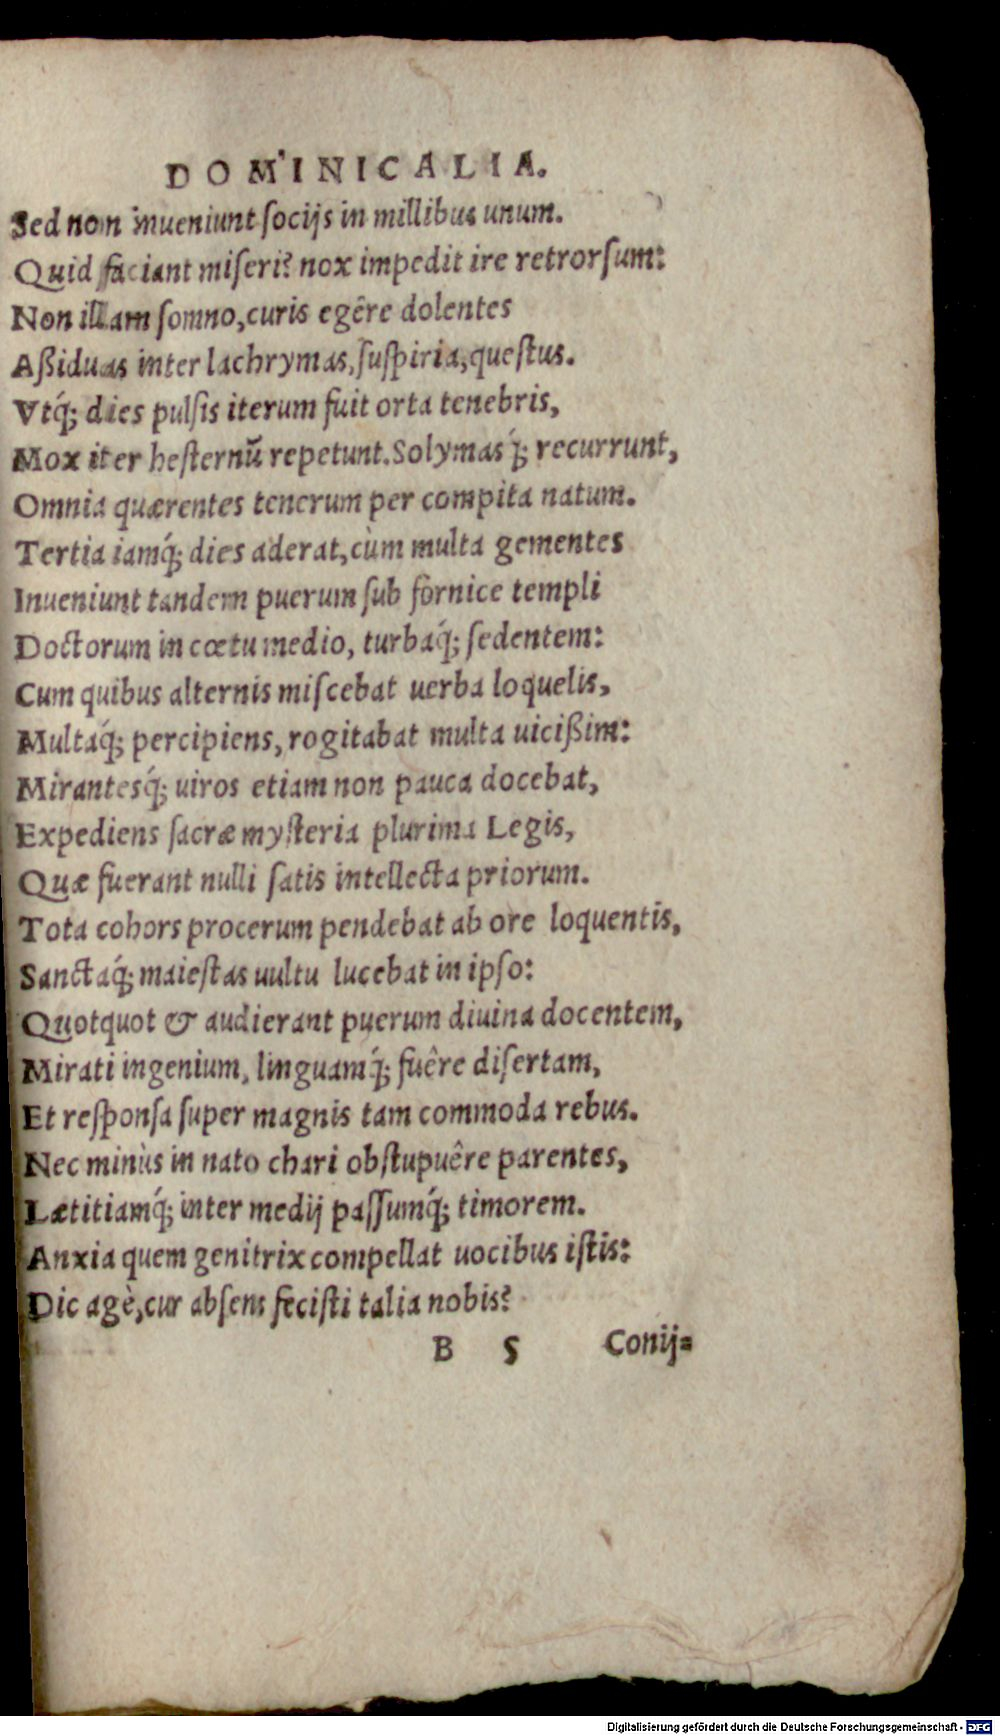 DOMINICALIA.
Sed non inueniunt socijs in millibus unum.
Quid faciant miseri? nox impedit ire retrorsum:
Non illam somno, curis egêre dolentes
Aßiduas inter lachrymas, suspiria, questus.
Vtq́; dies pulsis iterum fuit orta tenebris,
Mox iter hesternũ repetunt. Solymas q́; recurrunt,
Omnia quærentes tenerum per compita natum.
Tertia iamq́; dies aderat, cùm multa gementes
Inueniunt tandem puerum sub fornice templi
Doctorum in cœtu medio, turbaq́; sedentem:
Cum quibus alternis miscebat uerba loquelis,
Multaq́; percipiens, rogitabat multa uicißim:
Mirantesq́; uiros etiam non pauca docebat,
Expediens sacræ mysteria plurima Legis,
Quæ fuerant nulli satis intellecta priorum.
Tota cohors procerum pendebat ab ore loquentis,
Sanctaq́; maiestas uultu lucebat in ipso:
Quotquot & audierant puerum diuina docentem,
Mirati ingenium, linguamq́; fuêre disertam,
Et responsa super magnis tam commoda rebus.
Nec minùs in nato chari obstupuêre parentes,
Lætitiamq́; inter medij passumq́; timorem.
Anxia quem genitrix compellat uocibus istis:
Dic agè, cur absens fecisti talia nobis?
B 5 Conij=
Digitalisierung gefördert durch die Deutsche Forschungsgemeinschaft - DFG